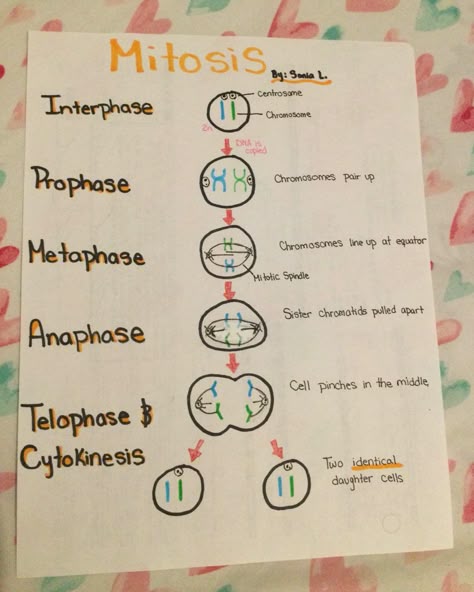 Mitosis
By: Sonia L.
Interphase
Centrosome
Chromosome
2n
DNA is
copied
Prophase
Chromosomes pair up
Metaphase
Chromosomes line up at equator
Mitotic Spindle
Anaphase
Sister chromatids pulled apart
Telophase &
Cytokinesis
Cell pinches in the middle
Two identical
daughter cells